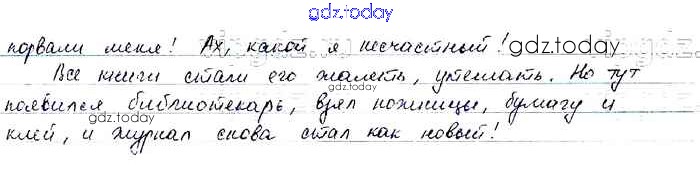 gdz.today
порвали меня! Ах, какой я несчастный! gdz.today
Все книги стали его жалеть, утешать. Но тут
gdz.today
появился библиотекарь, взял ножницы, бумагу и
gdz.today
клей, и журнал снова стал как новый!